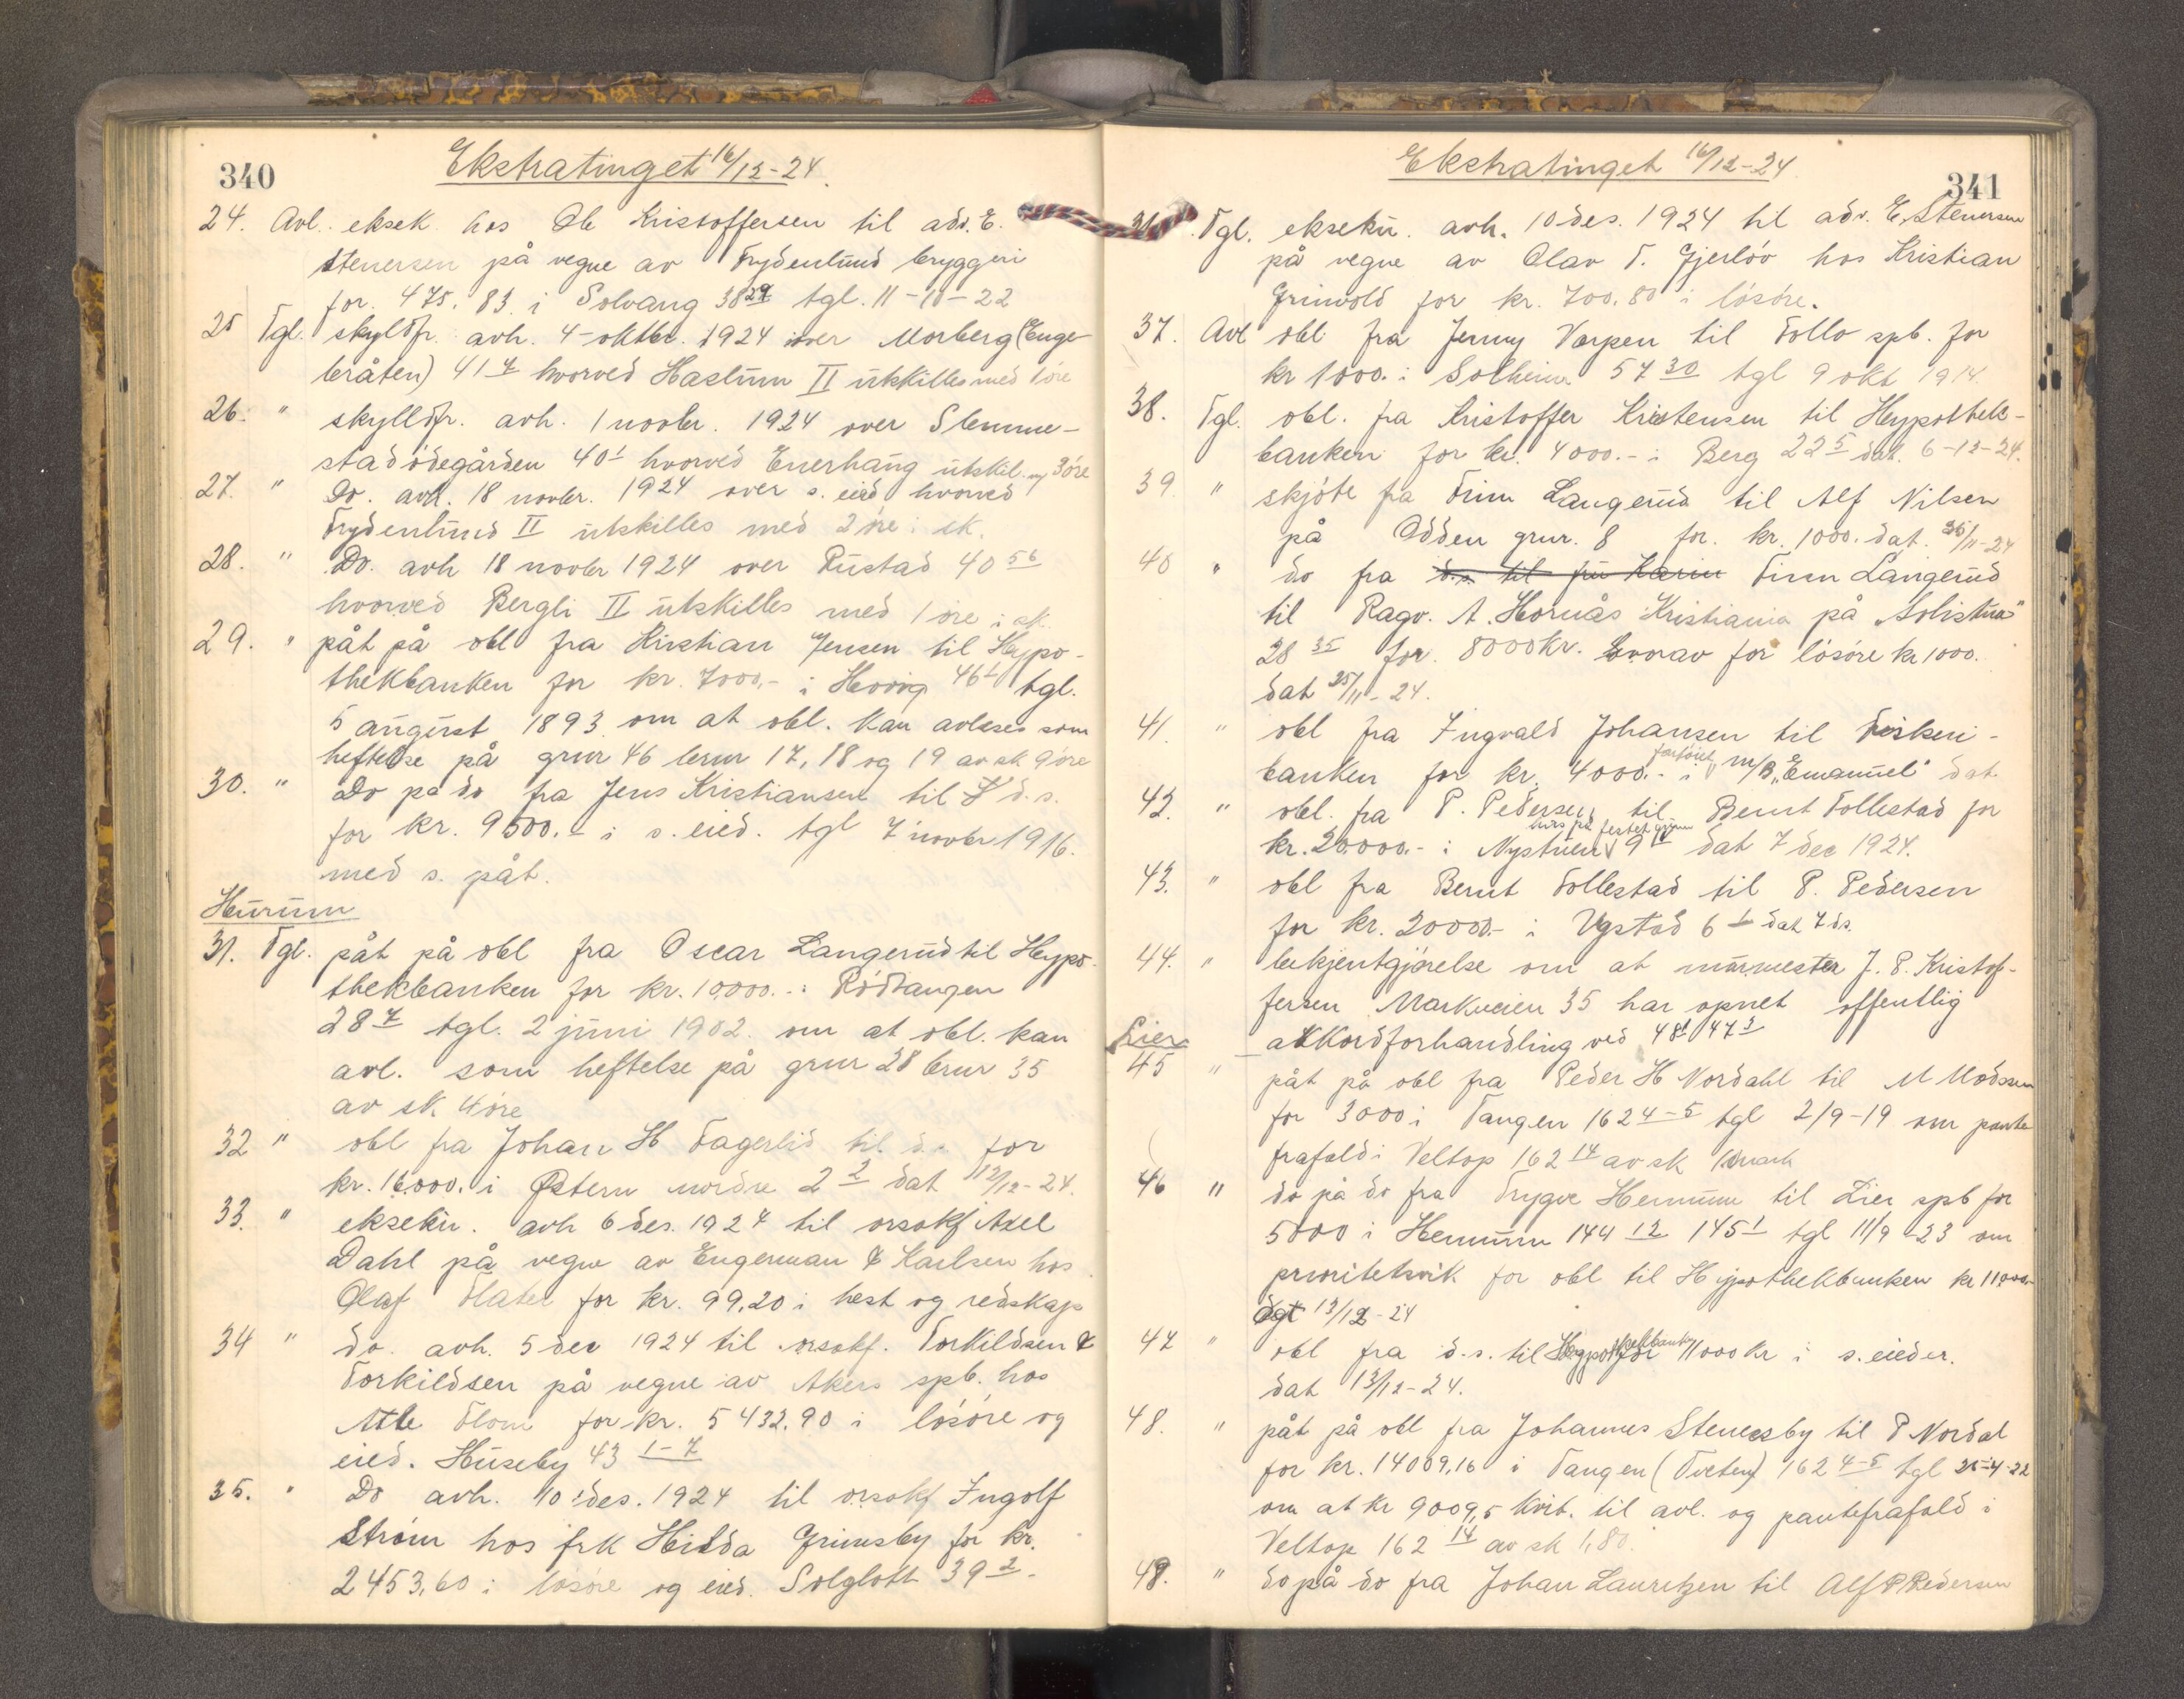 340
Ekstratinget 16/12-24.
24. Avl. eksek. hos Ole Kristoffersen til adv. E.
Stenersen på vegne av Frydenlund bryggeri
for. 475.83 i Solvang 38 29 tgl. 11-10-22
25 Tgl. skyldfr. avh. 4 oktbr. 1924 over Morberg (Enge-
bråten) 41 7 hvorved Haslum II utskilles med 1 öre
26. " skylldfr. avh. 1 novbr. 1924 over Slemme-
stadödegården 40 1 hvorved Enerhaug utskil. m/ 3 öre
27. " Do. avh. 18 novbr. 1924 over s. eied hvorved
Frydenlund II utskilles med 2 öre i sk.
28. " Do. avh 18 novbr 1924 over Rustad 40 56
hvorved Bergli II utskilles med 1 öre i sk.
29. " påt på obl fra Kristian Jensen til Hypo-
thekbanken for kr. 7000,- i 46 1 tgl.
5 august 1893 om at obl. kan avleses som
heftelse på grnr 46 brnr 17, 18 og 19 av sk 9 öre
30. " Do på do fra Jens Kristiansen til d.s.
for kr. 9500.- i s. eied. tgl 7 novbr 1916.
med s. påt.
Hurum
31. Tgl. påt på obl fra Oscar Langerud til Hypo-
thekbanken for kr. 10,000.- i Rödtangen
28 7 tgl. 2 juni 1902. om at obl. kan
avl. som heftelse på grnr 28 brnr 35
av sk. 4 öre
32 " obl fra Johan H Fagerlid til do for
kr. 16000. i Östern nordre 2 2 dat 12/12-24.
33. " ekseku. avh 6 des. 1924 til orsakf Axel
Dahl på vegne av Engerman & Karlsen hos
Olaf for kr. 99,20 i hest og redskap
34 " do. avh. 5 dec 1924 til orsakf. Torkildsen &
Torkildsen på vegne av Akers spb. hos
Atle for kr. 5432.90 i lösöre og
eied. Huseby 43 1-7
35. " Do avh. 10 des. 1924 til orsakf Ingolf
Ström hos frk Hilda Grimsby for kr.
2453,60 i lösöre og eied. Solglott 39 2.
341
Ekstratinget 16/12-24
36. Tgl. eksekü. avh. 10 des. 1924 til adv. E. Stenersen
på vegne av Olav T. Gjerlöv hos Kristian
Grinvold for kr. 700.80 i lösöre.
37. Avl obl fra Jenny Varpen til Follo spb. for
kr 1000. i Solheim 57 30 tgl 9 okt 1914.
38. Tgl. obl. fra Kristoffer Kristensen til Hypothek-
banken for kr. 4000.- i Berg 22 5 dat. 6-12-24.
39 " skjöte fra Finn Langerud til Alf Nilsen
på Odden grnr. 8 for. kr. 1000. dat. 25/11-24
40 " do fra d.s. til fru Karin Finn Langerud
til Ragv. A. Hornås Kristiania på "Solistua"
28 35 for. 8000 kr. hvorav for lösöre kr 1000.
dat 25/11-24.
41. " obl fra Ingvald Johansen til Fiskeri-
banken for kr. 4000.- i fartöiet m/B "Emanuel" dat
42. " obl. fra P. Pedersen til Bernt Follestad for
kr. 20,000.- i Nystuen hus på festet grunn 9 dat 7 dec 1924.
43. " obl fra Bernt Follestad til P. Pedersen
for kr. 20000.- i Ugstad 6 1 dat 7 ds.
44. " bekjentgjörelse om at murmester J. P. Kristof-
fersen Markveien 35 har opnet offentlig
akkordforhandling ved 48 1 47 3
Lier
45 " påt på obl fra Peder H Nordahl til M Madssen
for 3000 i Tangen 162 4-5 tgl 2/9-19 om pante
frafald i Veltop 162 14 av sk 10 mark
46 " do på do fra Trygve Hennum til Lier spb for
5000 i Hennum 144 12 145 1 tgl 11/9-23 om
prioritetsvik for obl til Hypothekbanken kr 11000.-
dgt 13/12-24
47 " obl fra d.s. til Hypothekbanken for 11000 kr i s. eieder.
dat 13/12-24.
48. " påt på obl fra Johannes Stenersby til P Nordal
for kr. 14009,16 i Tangen (Tveten) 162 4-5 tgl 25-4-22
om at kr 9009,5 kvit. til avl. og pantefrafald i
Veltop 162 14 av sk 1,80.
49. " do på do fra Johan Lauritzen til Alf P Pedersen